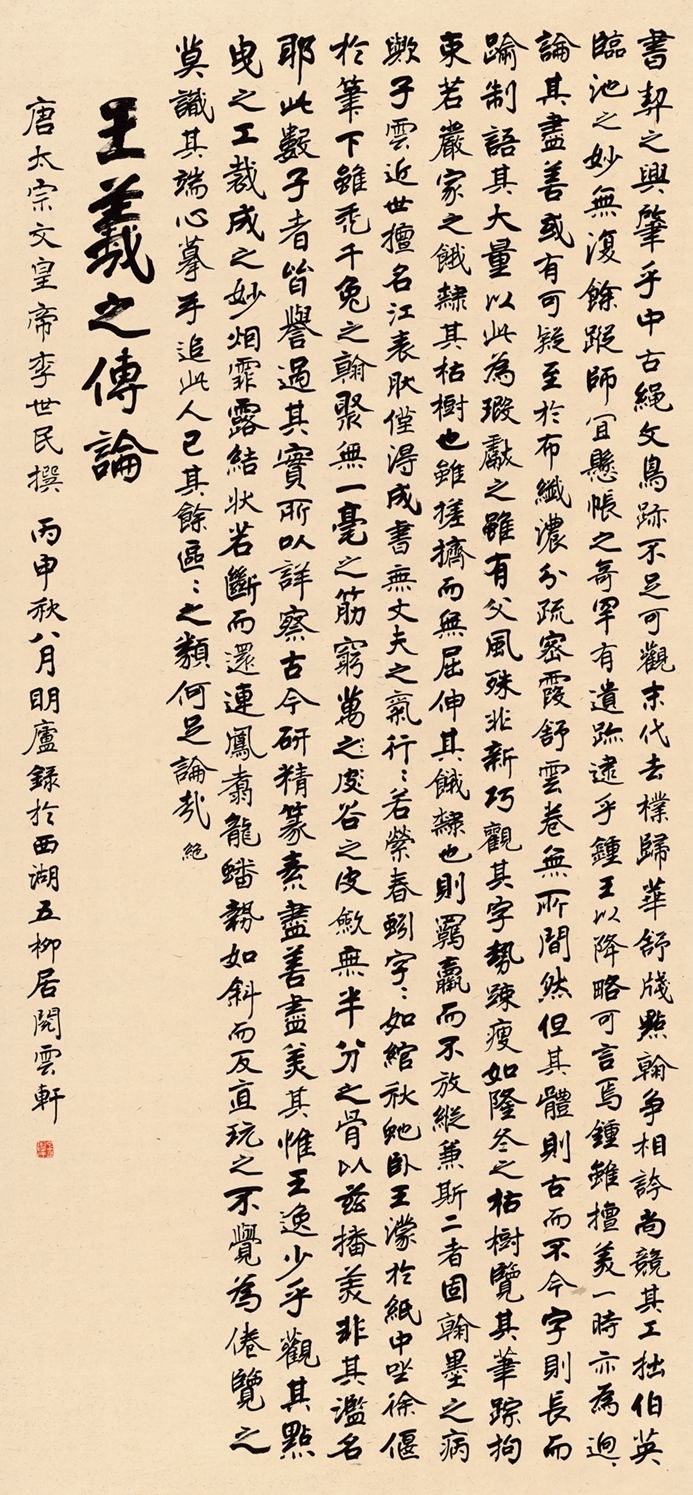 書契之興肇乎中古繩文鳥跡不足可觀末代去樸歸華舒牋點翰爭相誇尚競其工拙伯英
臨池之妙無復餘蹤師宜懸帳之奇罕有遺跡逮乎鍾王以降略可言焉鍾雖擅美一時亦為迥
論其盡善或有可疑至於布纖濃分疏密霞舒雲卷無所間然但其體則古而不今字則長而
踰制語其大量以此為瑕獻之雖有父風殊非新巧觀其字勢疎瘦如隆冬之枯樹覽其筆蹤拘
束若嚴家之餓隸其枯樹也雖槎擠而無屈伸其餓隸也則羈羸而不放縱兼斯二者固翰墨之病
歟子雲近世擅名江表肰僅得成書無丈夫之氣行〻若縈春蚓字〻如綰秋虵臥王濛於紙中坐徐偃
於筆下雖禿千兔之翰聚無一毫之筋窮萬之皮谷之皮斂無半分之骨以茲播美非其濫名
耶此數子者皆譽過其實所以詳察古今研精篆素盡善盡美其惟王逸少乎觀其點
曳之工裁成之妙烟霏露結狀若斷而還連鳳翥龍蟠勢如斜而反直玩之不覺為倦覽之
莫識其端心摹手追此人已其餘區〻之類何足論哉 絕
王羲之傳論
唐太宗文皇帝李世民撰 丙申秋八月明廬錄於西湖五柳居閱雲軒